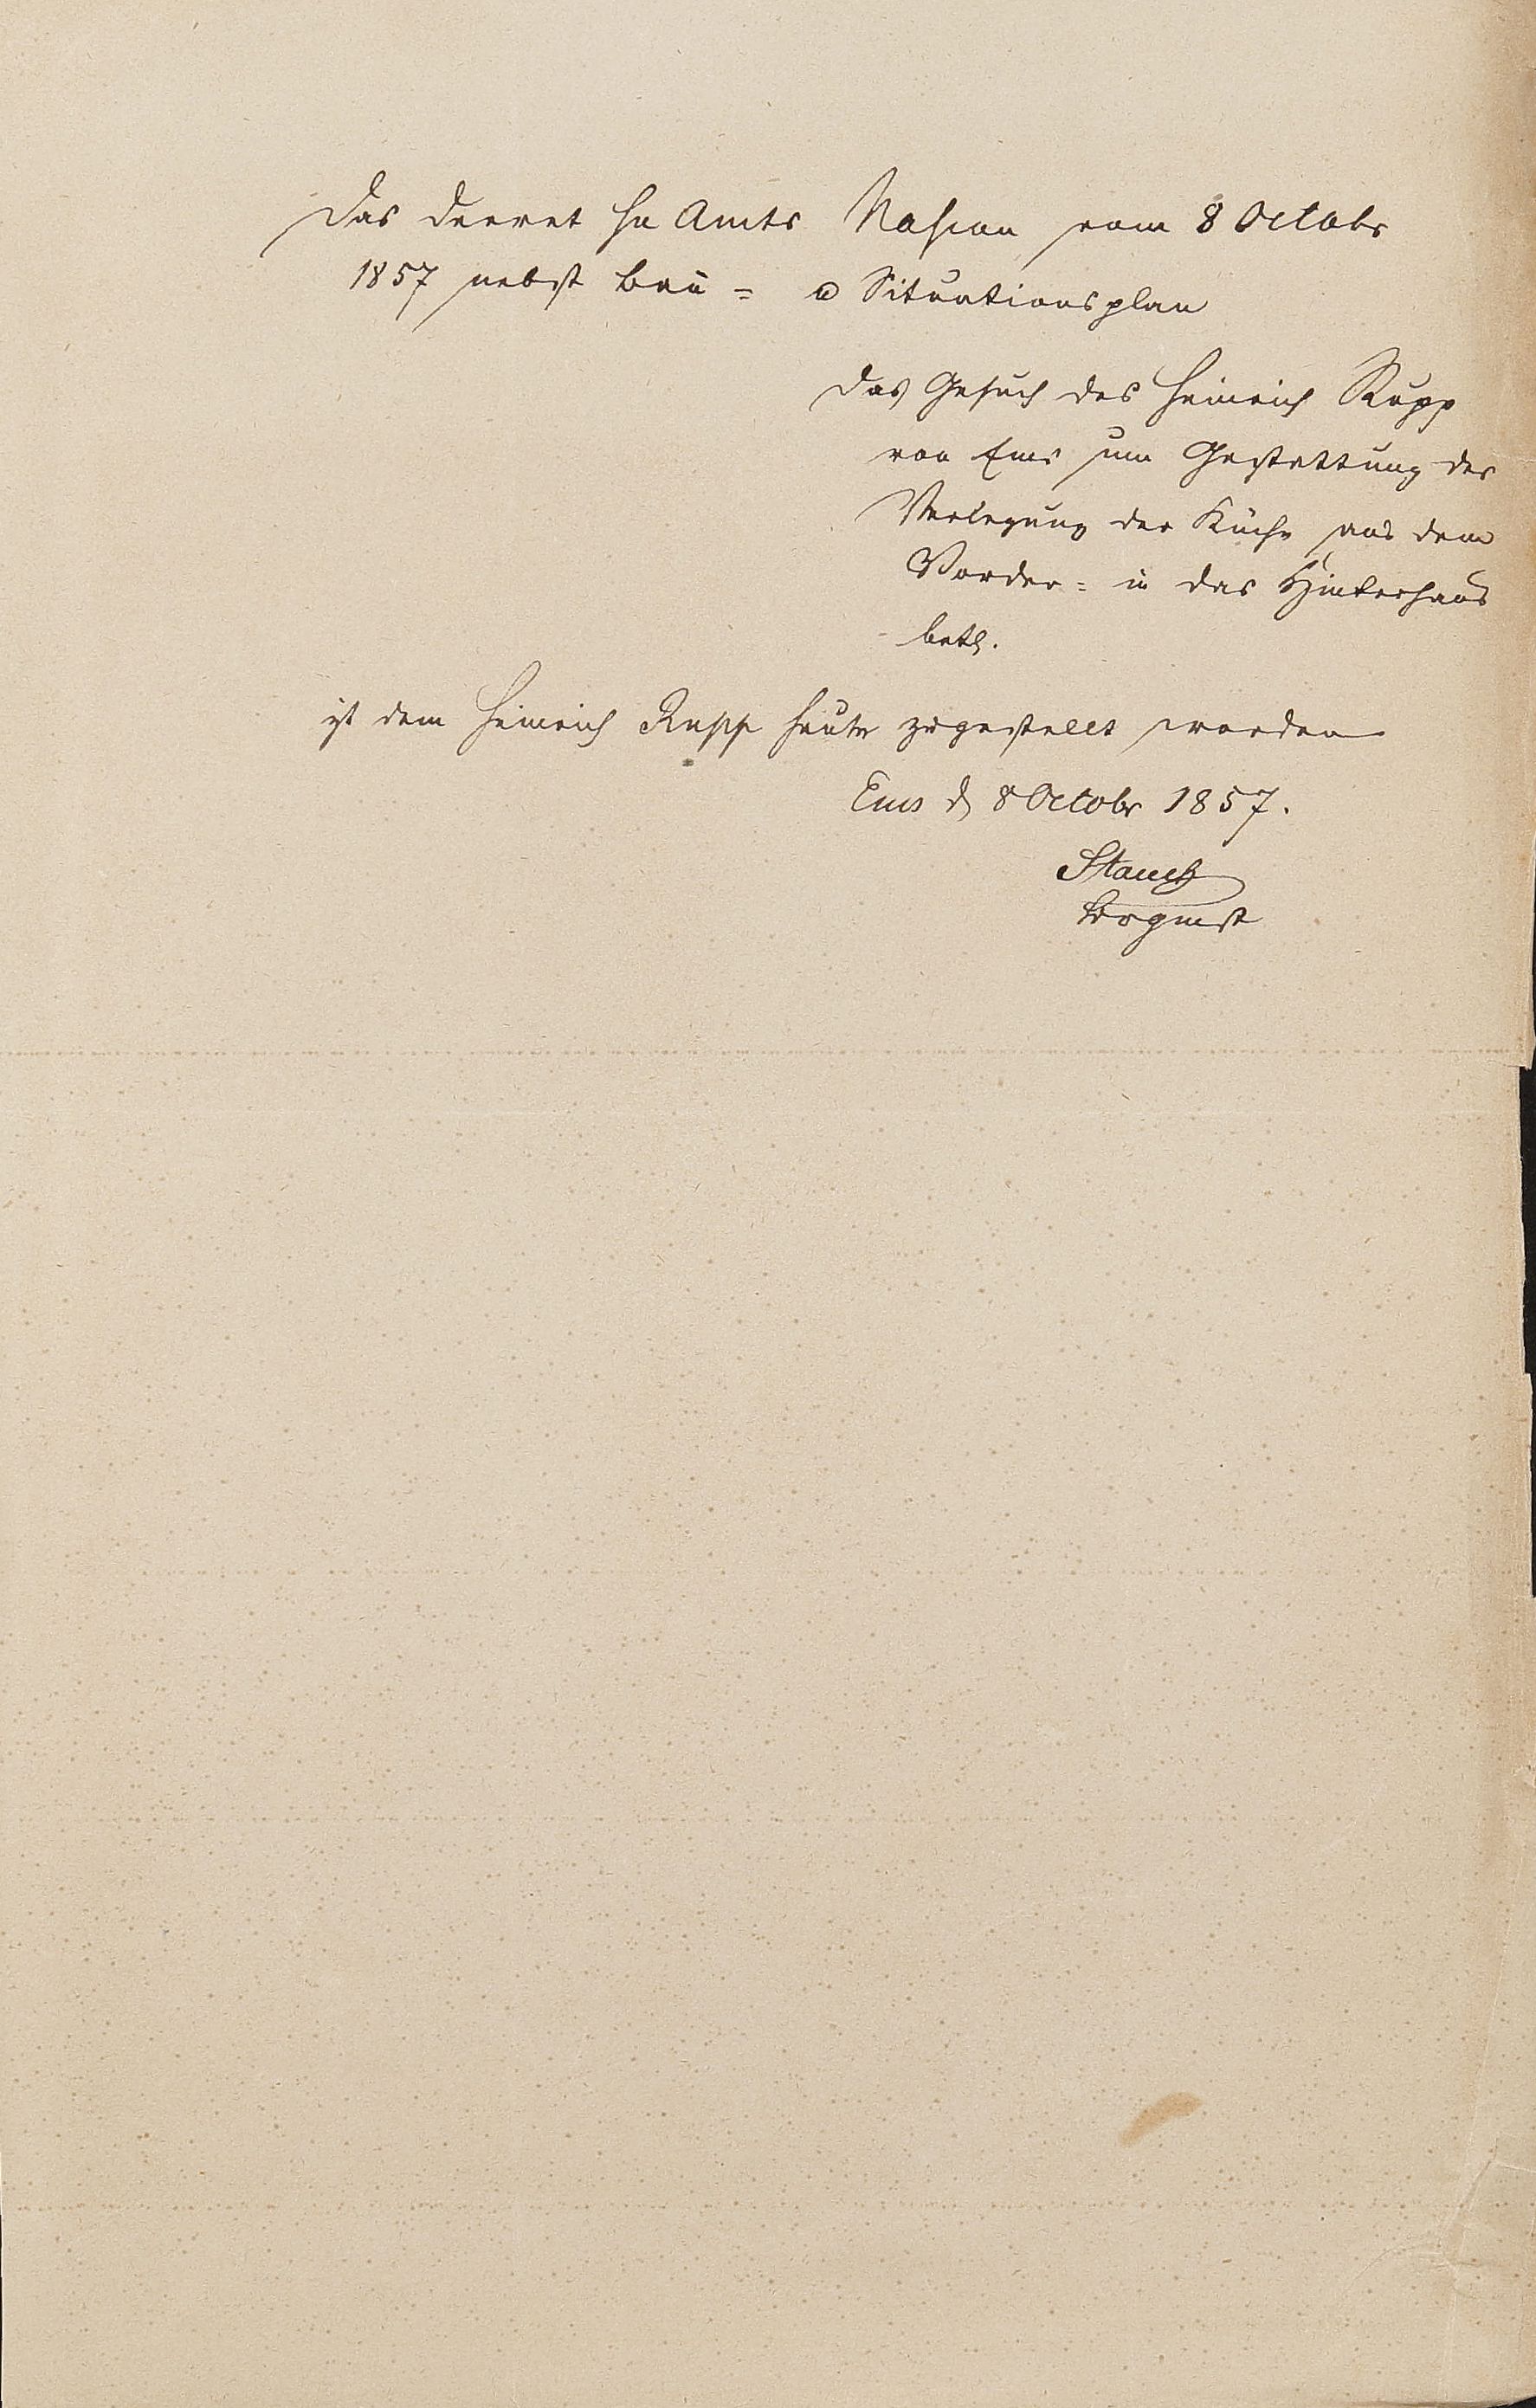 Das Decret Hz Amts Nassau vom 8 Octobr
1857 nebst Bau = u Situationsplan
das Gesuch des Heinrich Rupp
von Ems um Gestattung der
Verlegung der Küche aus dem
Vorder = in das Hinterhaus
betr.
ist dem Heinrich Rupp heute zugestellt worden
Ems d 8 Octobr 1857.
Stauch
Brgmst